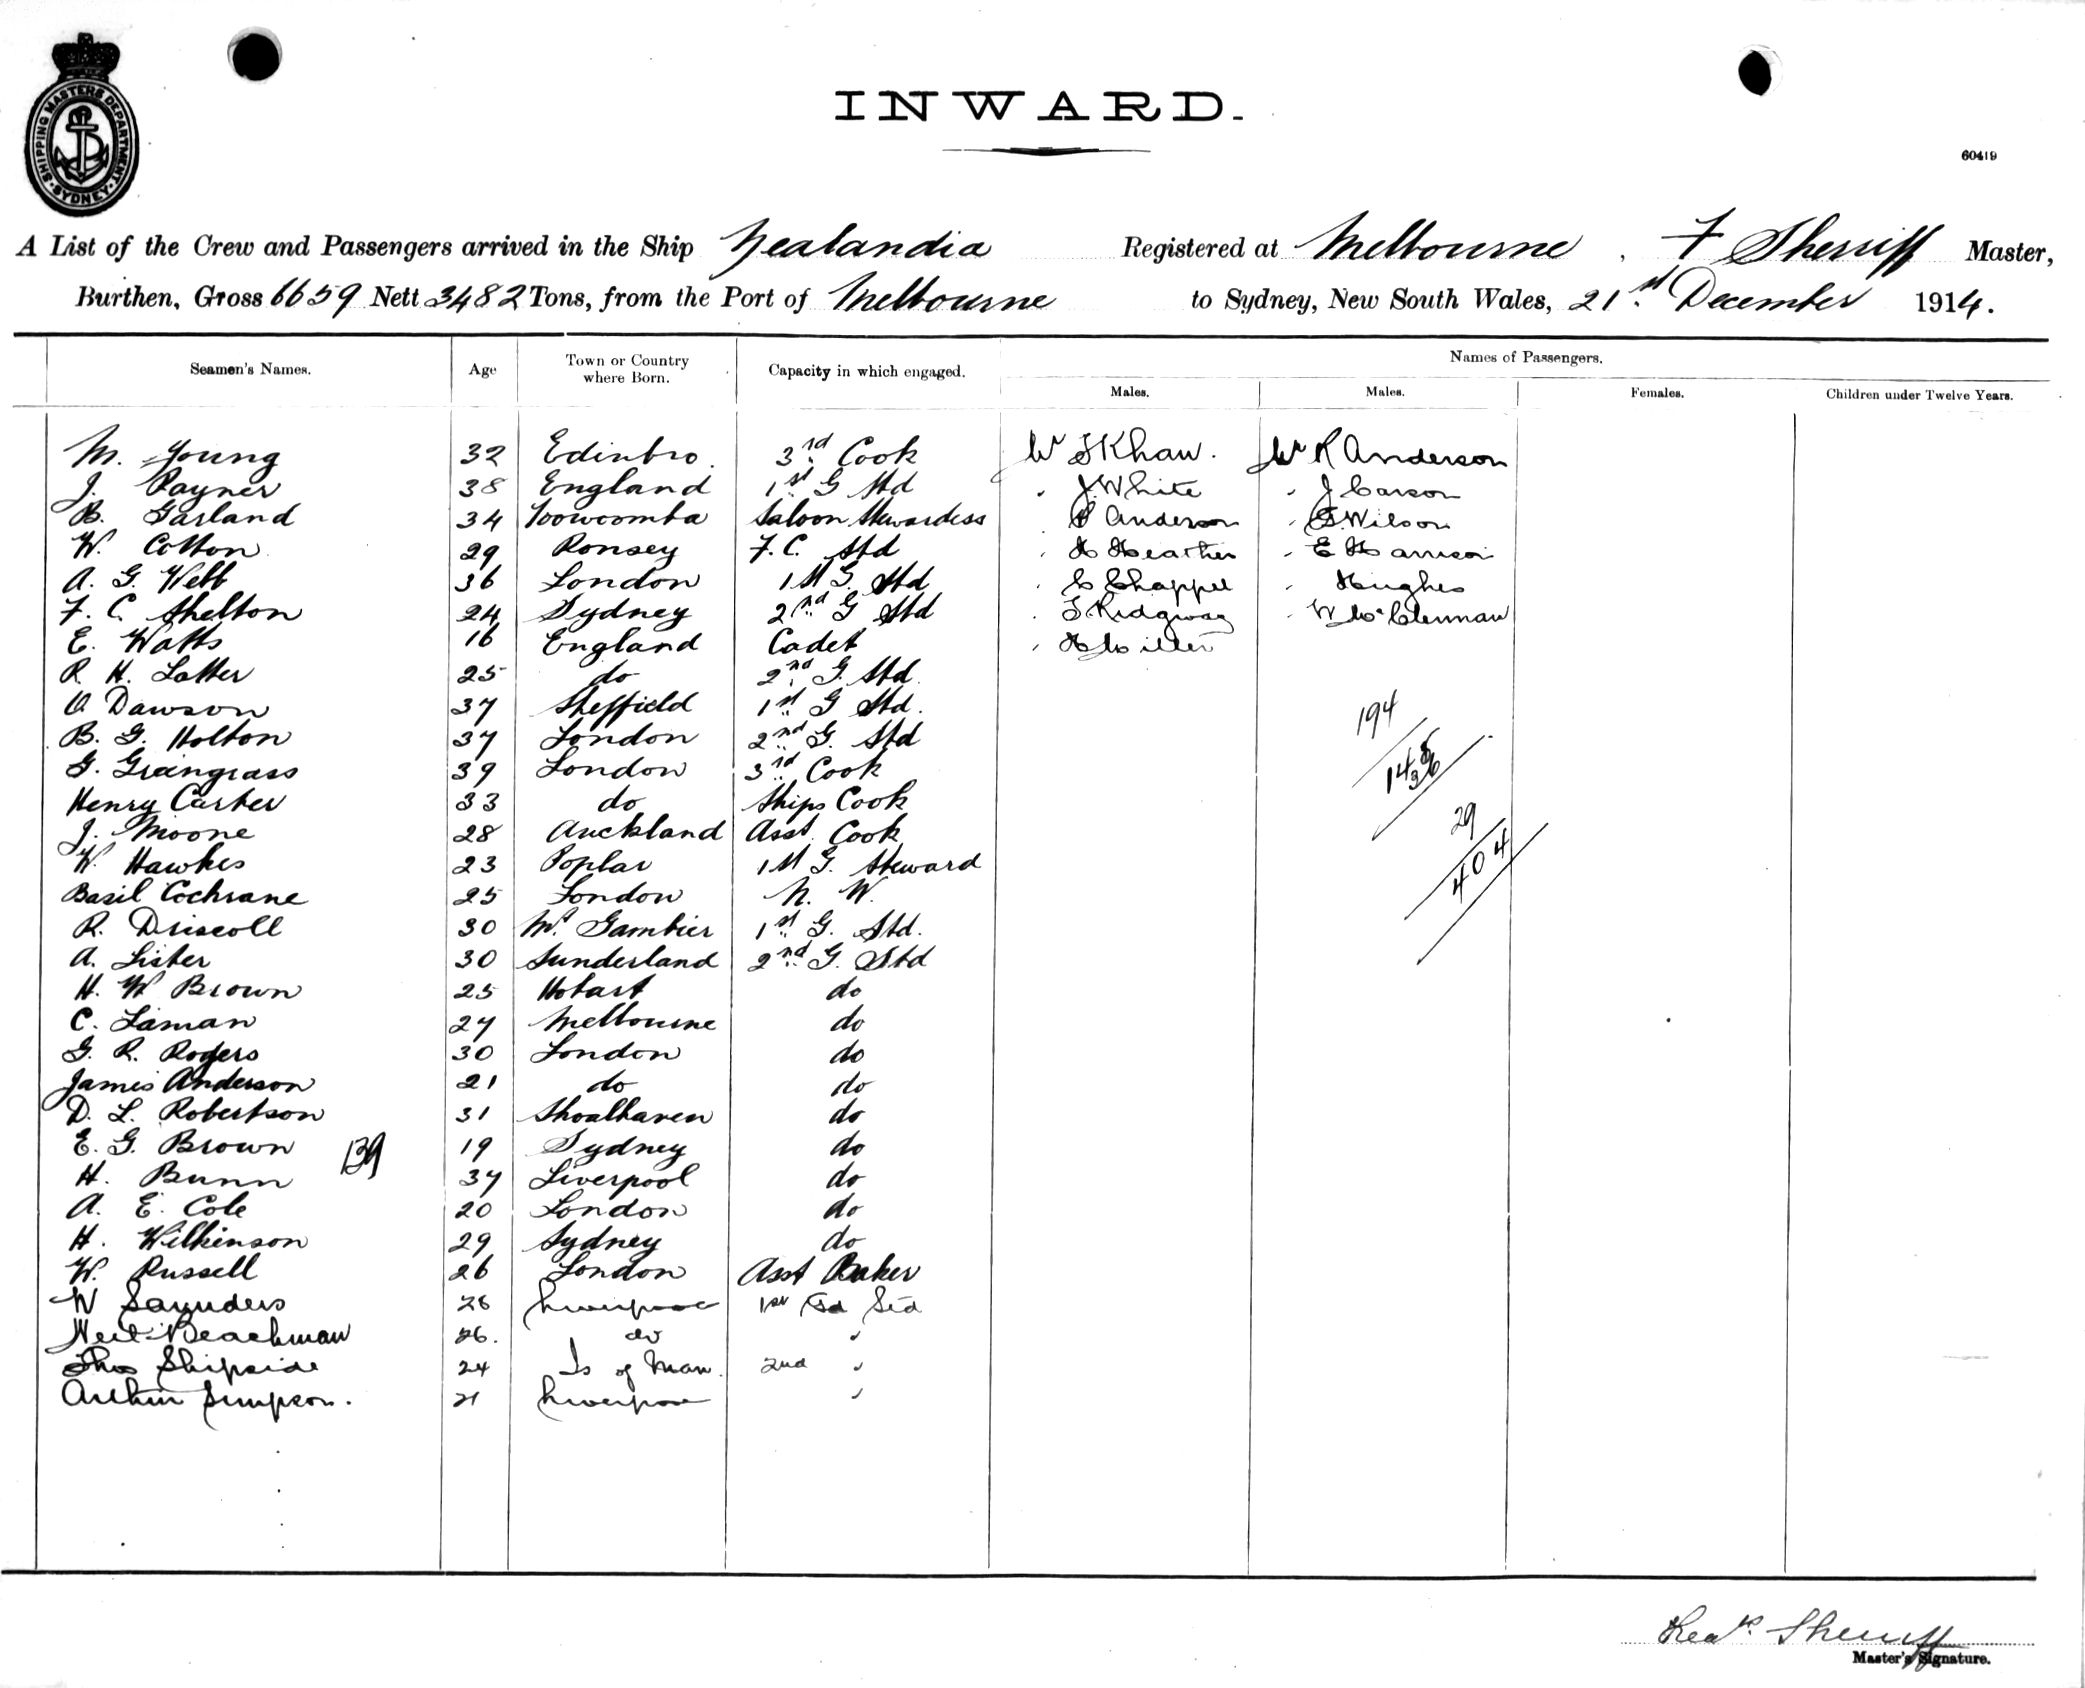 SHIPPING MASTERS DEPARTMENT SYDNEY
INWARD.
60419
A List of the Crew and Passengers arrived in the Ship Zealandia Registered at Melbourne, F Sherriff Master,
Burthen, Gross 6659 Nett 3482 Tons, from the Port of Melbourne to Sydney, New South Wales, 21st December 1914.
Seamen's Names. Age Town or Country where Born. Capacity in which engaged. Names of Passengers.
Males. Males. Females. Children under Twelve Years.
M. Young 32 Edinbro. 3rd Cook Mr Khaw. Mr R Anderson
J. Rayner 38 England 1st G Std J. White J Carson
B. Garland 34 Toowoomba Saloon Stewardess Anderson Wilson
W. Cotton 29 Romsey F. C. Std H Heather E Harrison
A. G. Webb 36 London 1st G. Std C Chappel Hughes
F. C. Shelton 24 Sydney 2nd G Std Ridgway W McClennan
E. Watts 16 England Cadet H Miller
R. H. Latter 25 do 2nd G. Std.
O Dawson 37 Sheffield 1st G Std.
B. G. Holton 37 London 2nd G. Std
194
G. Graingrass 39 London 3rd Cook
Henry Carter 33 do Ships Cook
J. Moone 28 Auckland Asst. Cook
29
W. Hawkes 23 Poplar 1st G. Steward
404
Basil Cochrane 25 London N. W.
R. Driscoll 30 Mt. Gambier 1st G. Std.
A. Lister 30 Sunderland 2nd G. Std
H. W Brown 25 Hobart do
C. Laman 27 Melbourne do
G. R. Rogers 30 London do
James Anderson 21 do do
D. L. Robertson 31 Shoalhaven do
E. G. Brown 19 Sydney do
139
H. Bunn 37 Liverpool do
A. E. Cole 20 London do
H. Wilkinson 29 Sydney do
W. Russell 26 London Asst Baker
W Saunders 26 Liverpool 1st Gd Std
Beachman 26. do "
Thos Shipside 24 Is of Man. 2nd "
Arthur Simpson. 21 Liverpool "
Fredk. Sherriff
Master's Signature.